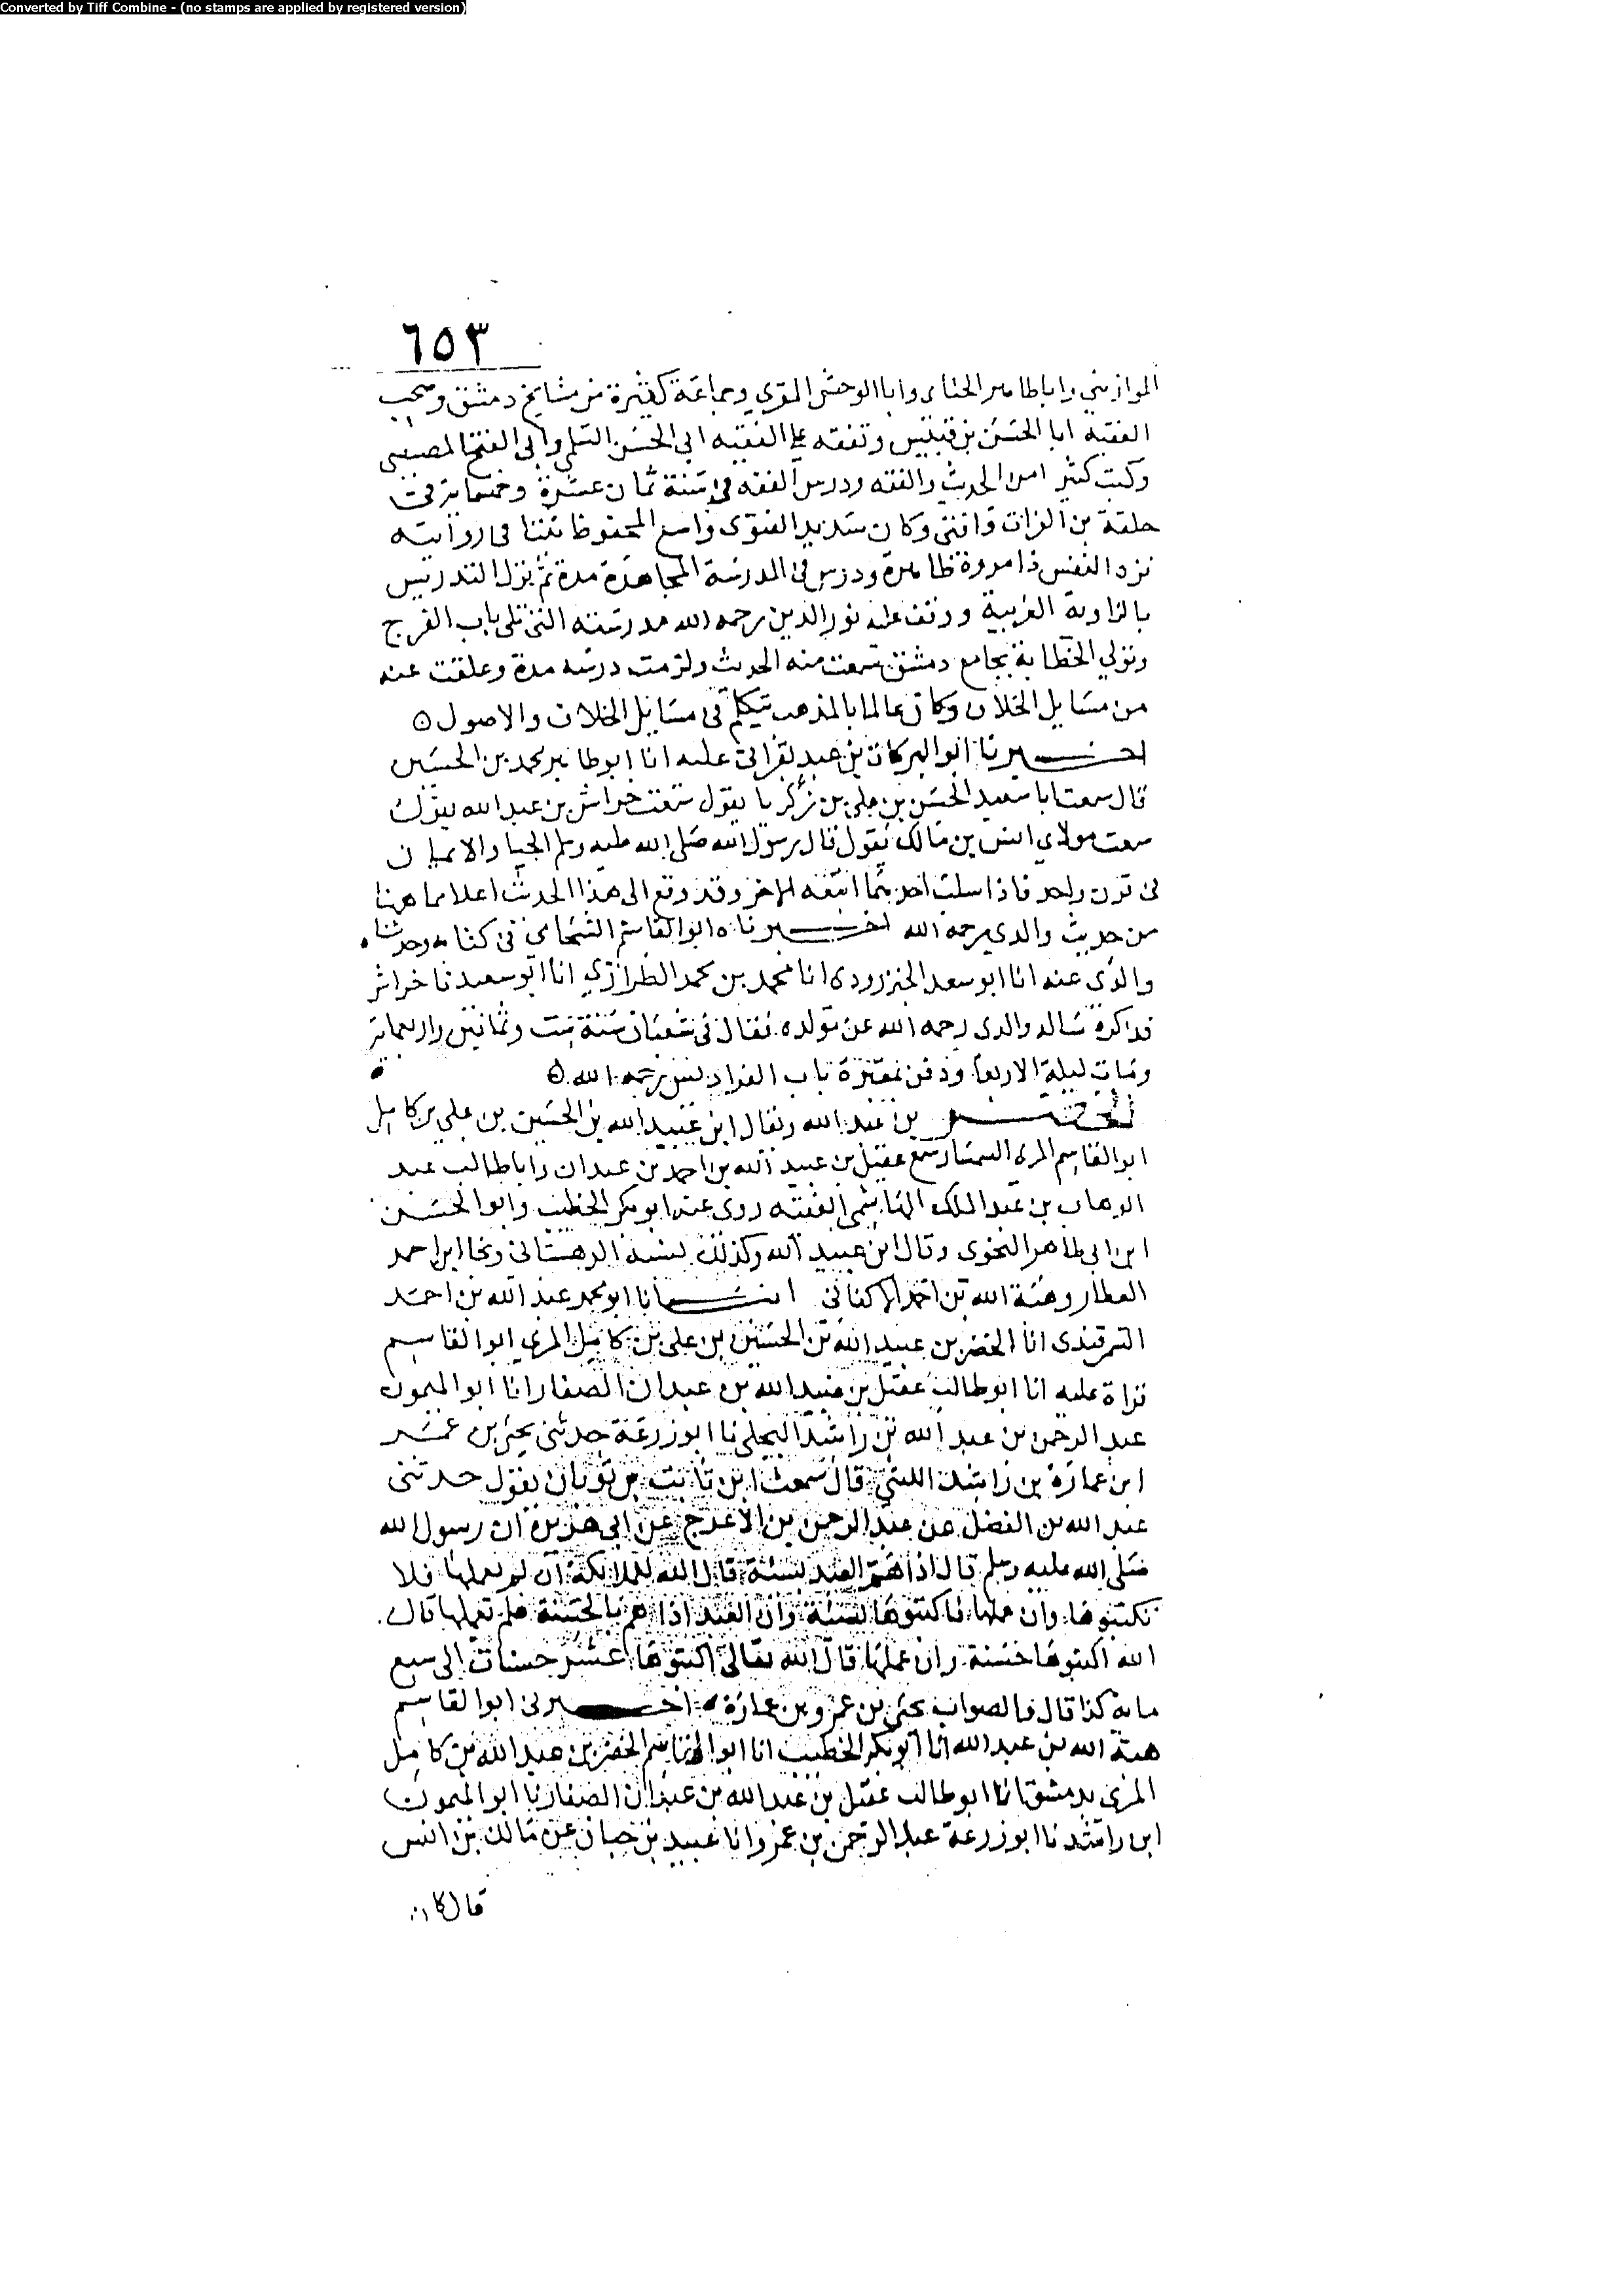 Converted by Tiff Combine - (no stamps are applied by registered version)
٦٥٣
الموازيني وابا طاهر الحنائي وابا الوحش المقري وجماعة كثيرة من مشايخ دمشق وصحب
الفقيه ابا الحسن بن قبيس وتفقه على الفقيه ابي الحسن السلمي وابي الفتح المصيصي
وكتب كثيرا من الحديث والفقه ودرس الفقه في سنة ثمان عشرة وخمسماية في
حلقة بن الفرات وافتى وكان سديد الفتوى واسع المحفوظ ثبتا في روايته
نزه النفس ذا مروة ظاهرة ودرس في المدرسة المجاهدة مدة ثم نزل التدريس
بالزاوية الغربية ووقف عليه نور الدين رحمه الله مدرسته التي تلي باب الفرج
وتولي الخطابة بجامع دمشق سمعت منه الحديث ولزمت درسه مدة وعلقت عنه
من مسايل الخلاف وكان عالما بالمذهب يتكلم في مسايل الخلاف والاصول ه
اخبرنا ابو البركات بن عبد بقراتي عليه انا ابو طاهر محمد بن الحسين
قال سمعت ابا سعيد الحسن بن علي بن زكريا يقول سمعت خراش بن عبد الله يقول
سمعت مولاي انس بن مالك يقول قال رسول الله صلى الله عليه وسلم الحيا والايمان
في قرن واحد فاذا سلب احدهما اتبعه الاخر وقد وقع الى هذا الحديث اعلا مما هنا
من حديث والدي رحمه الله اخبرناه ابو القاسم الشحامي في كتابه وحدثنا
والدي عنه انا ابو سعد الجنزرودي انا محمد بن محمد الطرازي انا ابو سعيد نا خراش
فذاكرة ساله والدي رحمه الله عن مولده فقال في شعبان سنة ست وثمانين واربعماية
ومات ليلة الاربعا ودفن بمقبرة باب الفراديس رحمه الله ه
الخضر بن عبد الله ويقال ابن عبيد الله بن الحسين بن علي بن كامل
ابو القاسم المري السمسار سمع عقيل بن عبيد الله بن احمد بن عبدان وابا طالب عبد
الوهاب بن عبد الملك الهاشمي الفقيه روى عنه ابو بكر الخطيب وابو الحسن
ابن ابي طاهر النحوي وقال ابن عبيد الله وكذلك نسبه الدهستاني ونجا ابن احمد
العطار وهبة الله بن احمد الاكفاني انبانا ابو محمد عبد الله بن احمد
السمرقندي انا الخضر بن عبيد الله بن الحسين بن علي بن كامل المري ابو القاسم
قراة عليه انا ابو طالب عقيل بن عبيد الله بن عبدان الصفار انا ابو الميمون
عبد الرحمن بن عبد الله بن راشد البجلي نا ابو زرعة حدثني يحيى بن عمر
ابن عمارة بن راشد الليثي قال سمعت ابن ثابت بن ثوبان يقول حدثني
عبد الله بن الفضل عن عبد الرحمن بن الاعرج عن ابي هريرة ان رسول الله
صلى الله عليه وسلم قال اذا هم العبد بسيئة قال الله للملايكة ان لم يعملها فلا
تكتبوها وان عملها فاكتبوها سيئة وان العبد اذا هم بالحسنة فلم يعملها قال
الله اكتبوها حسنة وان عملها قال الله تعالى اكتبوها عشر حسنات الى سبع
ماية كذا قال والصواب يحيى بن عمرو بن عمارة اخبرني ابو القاسم
هبة الله بن عبد الله انا ابو بكر الخطيب انا ابو القاسم الخضر بن عبد الله بن كامل
المري بدمشق انا ابو طالب عقيل بن عبد الله بن عبدان الصفار نا ابو الميمون
ابن راشد نا ابو زرعة عبد الرحمن بن عمرو انا عبيد بن حبان عن مالك بن انس
قال كان